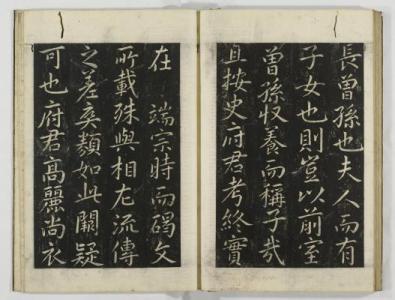 長曾孫也夫人而有
子女也則豈以前室
曾孫収養而稱子哉
且按史府君考終實
在 端宗時而碣文
所載殊與相左流傳
之差爽類如此闕疑
可也府君高麗尚衣